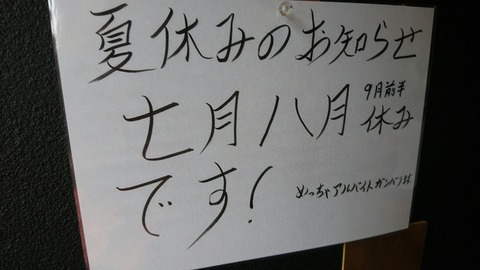 夏休みのお知らせ
七月八月 9月前半 休み
です!
めっちゃアルバイトガンバリます